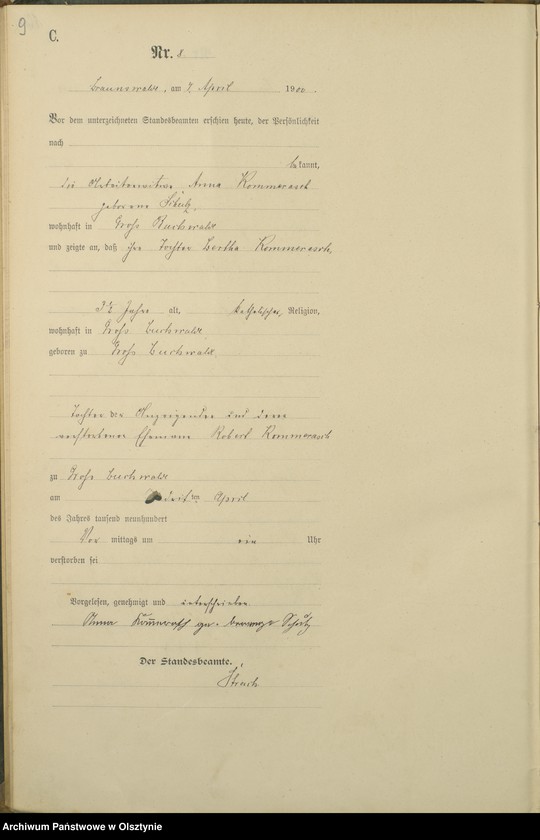 9
C.
Nr. 8
Braunswalde, am 7. April 1900.
Vor dem unterzeichneten Standesbeamten erschien heute, der Persönlichkeit
nach
bekannt,
die Arbeiterwitwe Anna Kommerasch
geborene
wohnhaft in Groß Buchwalde
und zeigte an, daß ihre Tochter Bertha Kommerasch,
Jahre alt, katholischer Religion,
wohnhaft in Groß Buchwalde,
geboren zu Groß Buchwalde,
Tochter der Anzeigenden und deren
verstorbenen Ehemann Robert Kommerasch
zu Groß Buchwalde
am ten April
des Jahres tausend neunhundert
Vor mittags um ein Uhr
verstorben sei
Vorgelesen, genehmigt und unterschrieben
Anna
Der Standesbeamte.
Archiwum Państwowe w Olsztynie